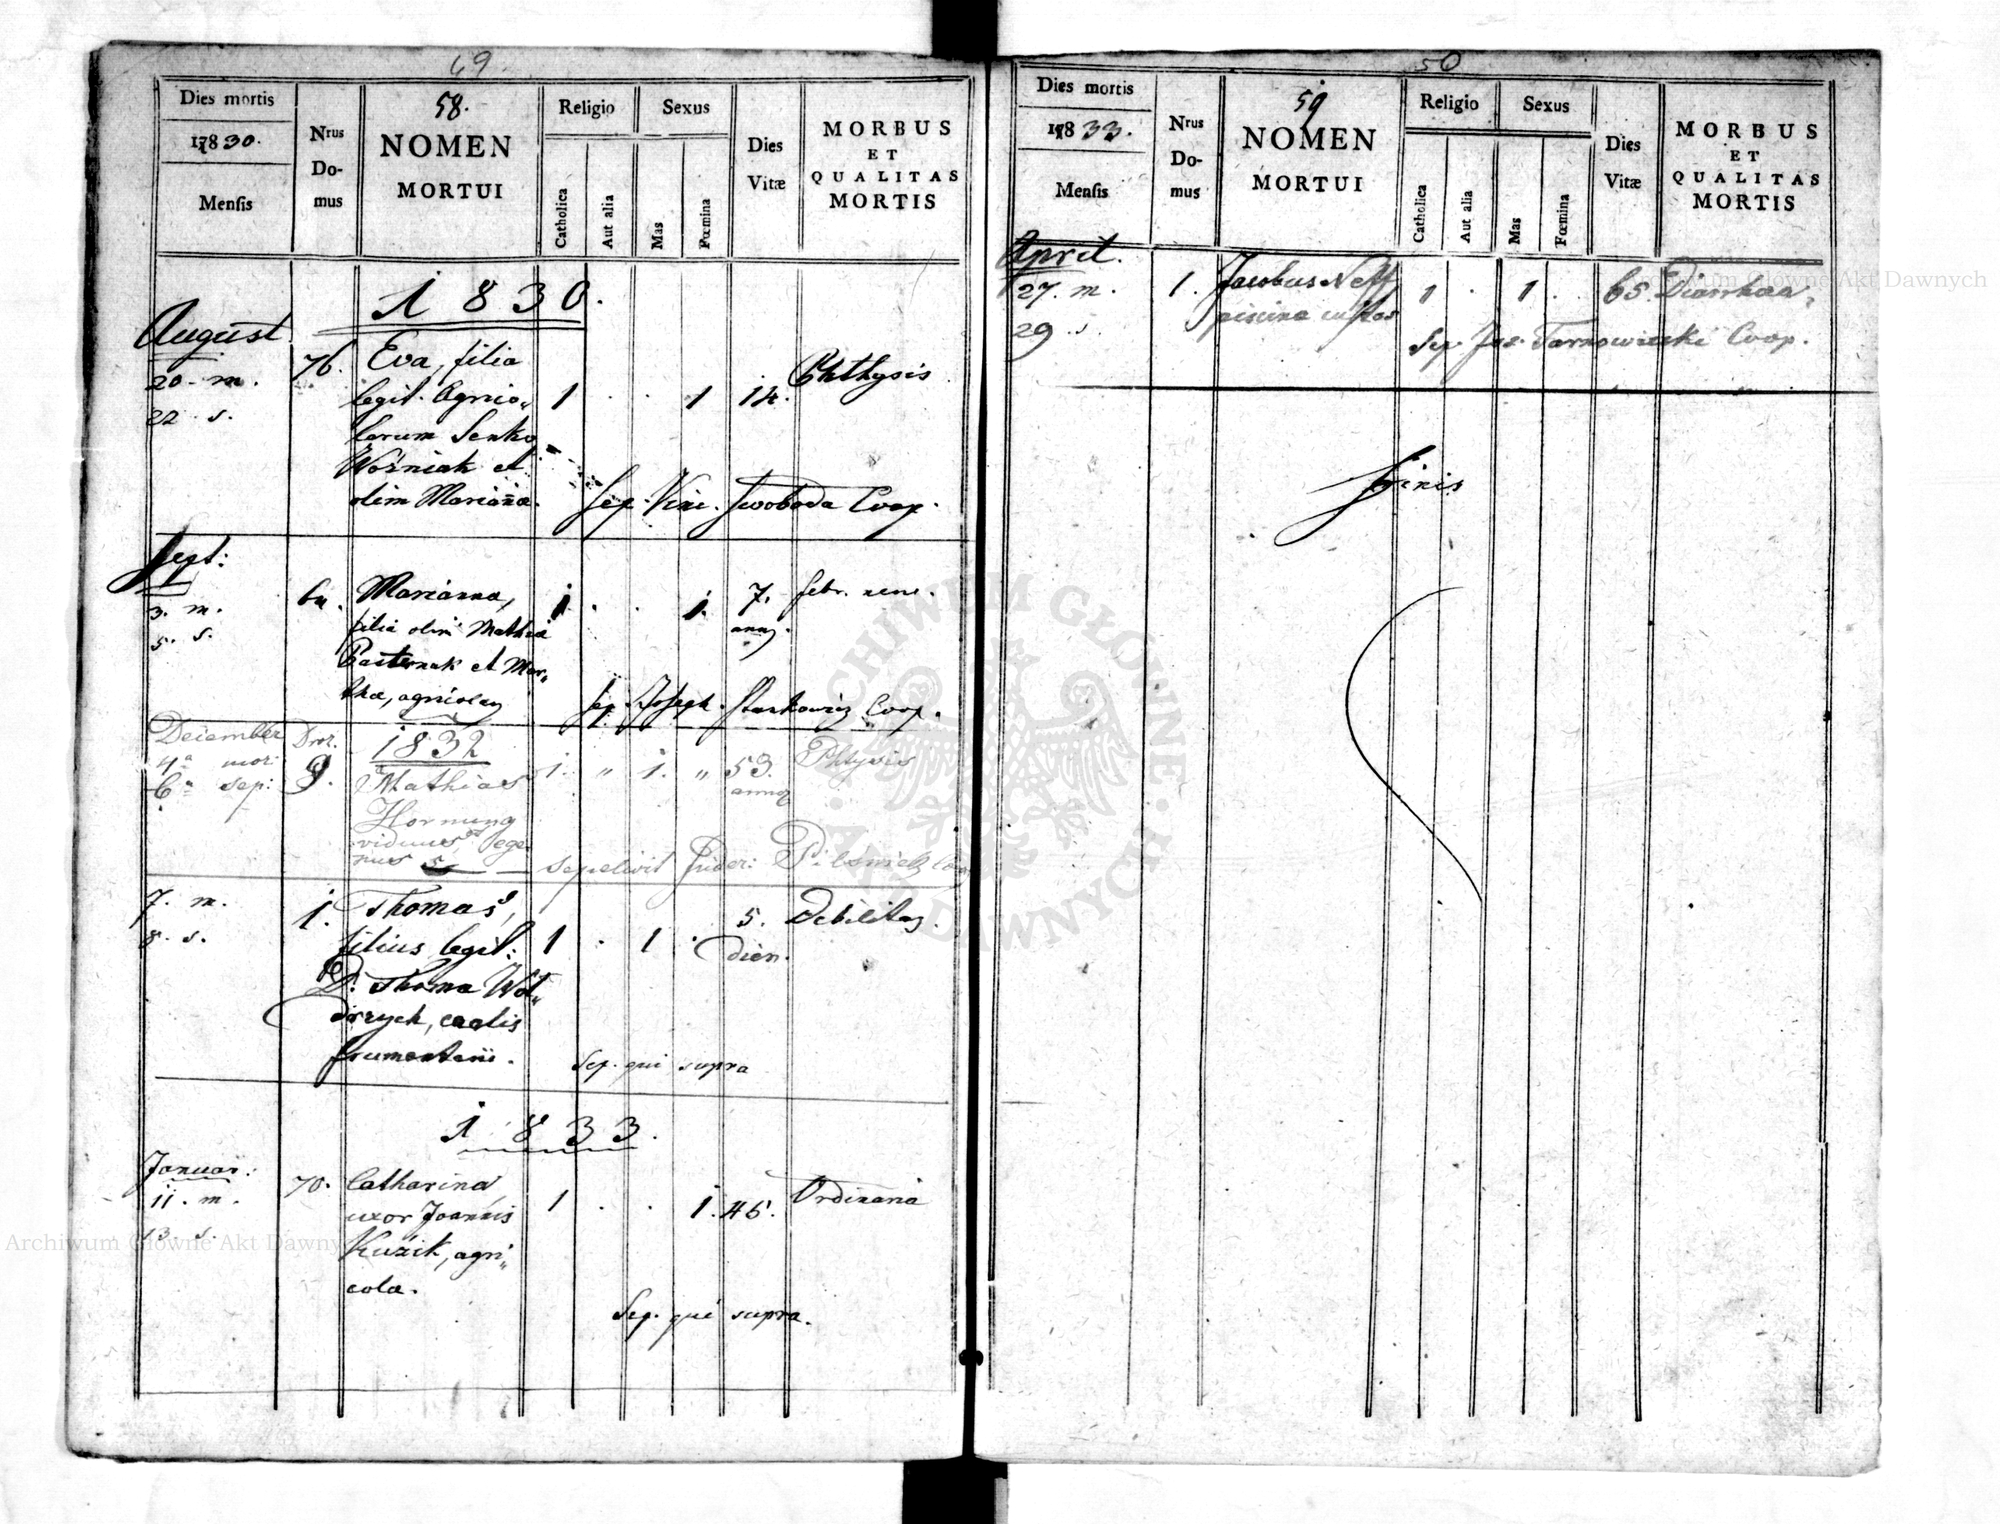 49
Dies mortis
17830.
Mensis
Nrus Domus
58.
NOMEN
MORTUI
Religio
Catholica
Aut alia
Sexus
Mas
Fœmina
Dies
Vitæ
MORBUS
ET
QUALITAS
MORTIS
1830.
August
20. m.
22. s.
76.
Eva, filia
legit. Agrico„
larum Senko
Woźniak et
olim Mariana.
1 . . 1 14. Phthysis
Sep. Vinc. Swoboda Coop.
Sept:
3. m.
5. s.
Marianna,
filia olim Mathiæ
Pasternak et Mar„
thæ, agricolar
1 . . 1. 7. febr. nerv.
annor.
Sep. Joseph. Stankowicz Coop.
1832
December
4a mor:
6a sep:
9.
Mathias
Hornung
viduus, ege
nus
1. „ 1. „ 53. Phtysis
annor
sepelivit
7. m.
8. s.
1.
Thomas,
filius legit:
D. Thoma Wo„
drzych,
frumentarii.
1 . 1 . 5. Debilitas.
dier.
Sep. qui supra
1833.
Januar:
11. m.
13. s.
70.
Catharina
uxor Joannis
Kuźik, agri„
colæ.
1 . . 1. 45. Ordinaria
Sep. qui supra.
50
Dies mortis
17833.
Mensis
Nrus Domus
59
NOMEN
MORTUI
Religio
Catholica
Aut alia
Sexus
Mas
Fœmina
Dies
Vitæ
MORBUS
ET
QUALITAS
MORTIS
April.
27. m.
29 s.
1.
Jacobus Neff
piscinæ custos
1 . 1 . 65. Diarrhæa,
Sep. Jos. Tarnowiecki Coop.
Finis
Archiwum Główne Akt Dawnych
Archiwum Główne Akt Dawnych
ARCHIWUM GŁÓWNE · AKT DAWNYCH ·